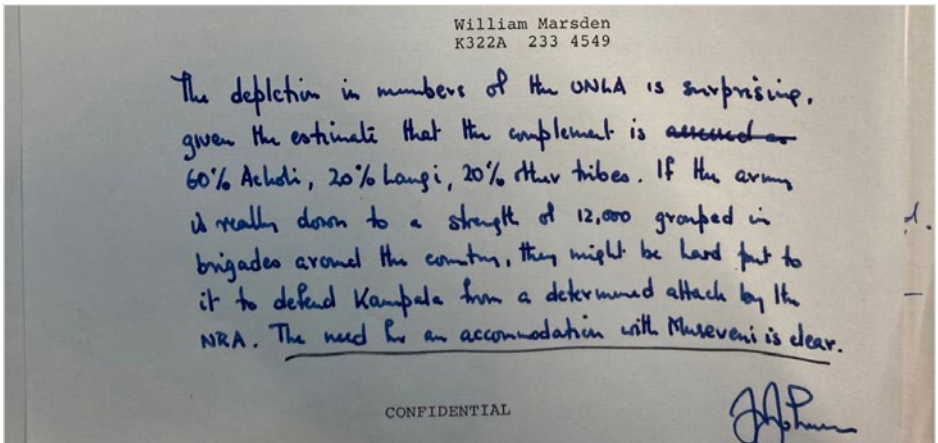 William Marsden
K322A 233 4549
The depletion in numbers of the UNLA is surprising,
given the estimate that the complement is assessed as
60% Acholi, 20% Langi, 20% other tribes. If the army
is really down to a strength of 12,000 grouped in
brigades around the country, they might be hard put to
it to defend Kampala from a determined attack by the
NRA. The need for an accommodation with Museveni is clear.
CONFIDENTIAL